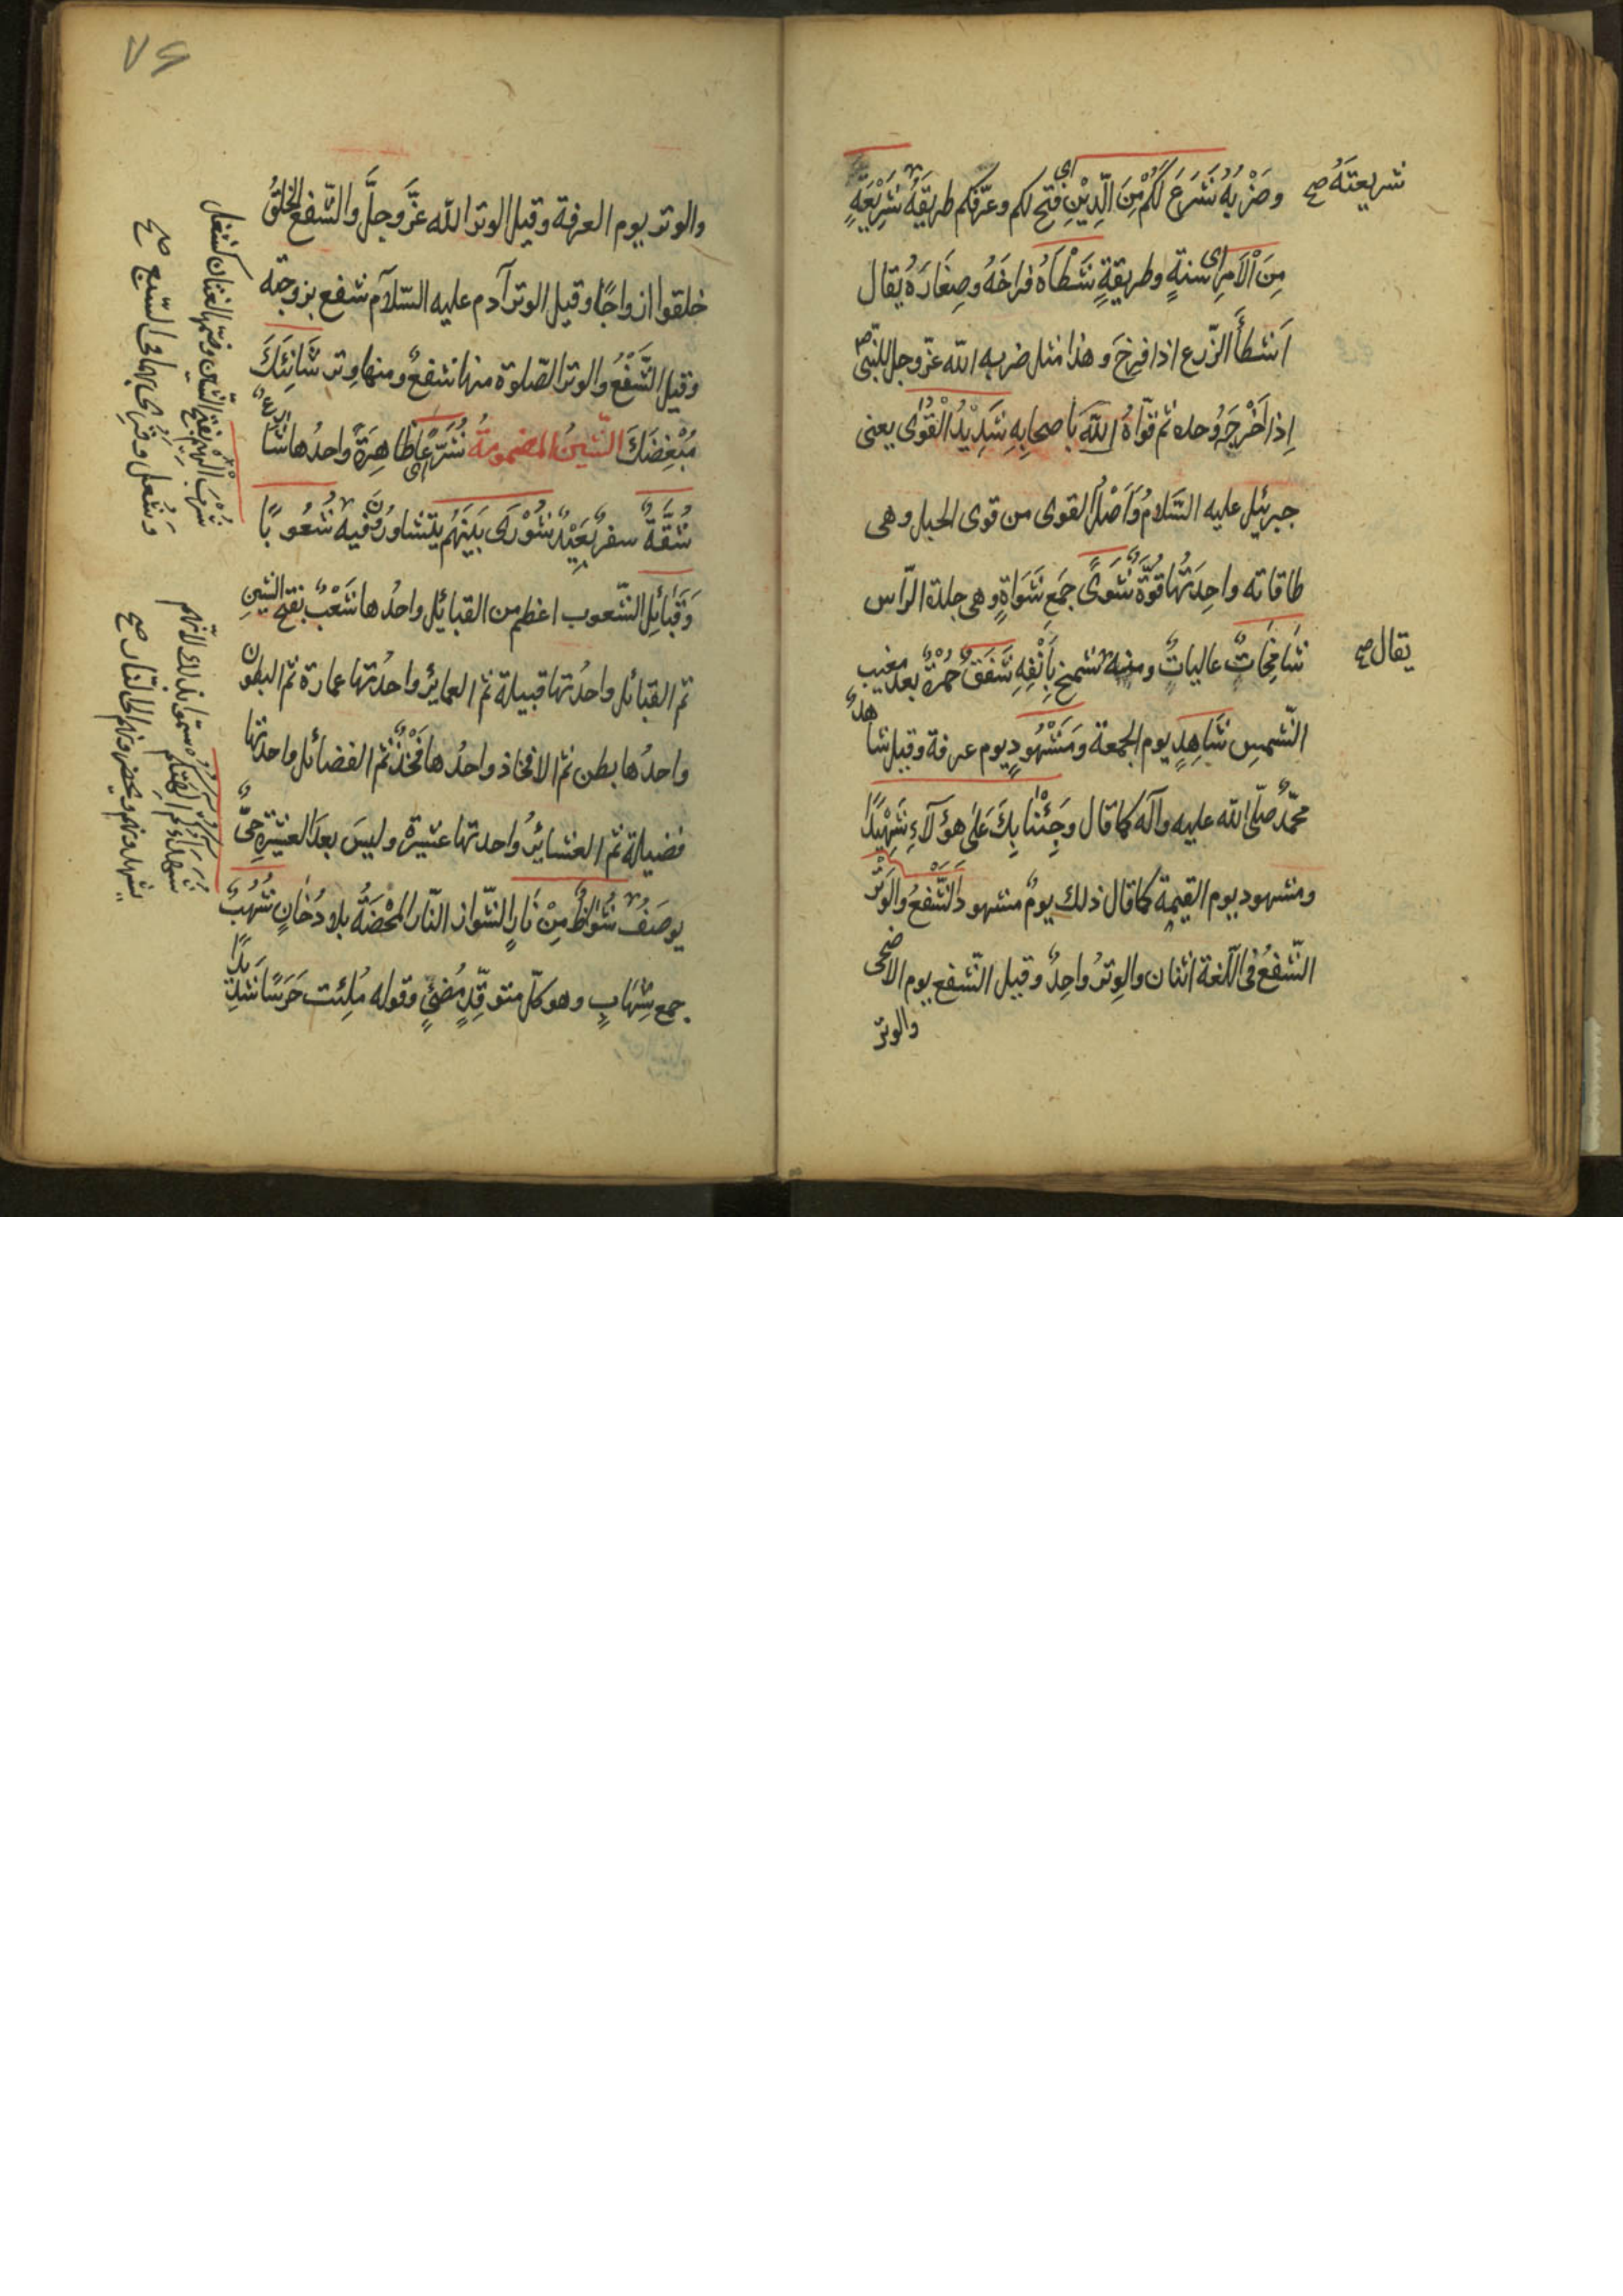 شريعتَهُ صح
وضَرْبُهُ شَرَعَ لَكُمْ مِنَ الدِّيْنِ اى فتح لكم وعرّفكم طريقَهُ شَرِيْعَةٍ
مِنَ الْاَمرِ اى سنةٍ وطريقةٍ شَطْاَهُ فراخَهُ وصِغَارَهُ يُقال
اَشطأَ الزّرع اذا فرخَ وهذا مثل ضربه الله عزّ وجل للنبىّ ص
اِذا اَخْرَجَهُ وحده ثم قوّاهُ اللهُ باَصحابِهِ شَدِيْدُ الْقُوٰى يعنى
جبرئيل عليه السَّلامُ وَاَصْلُ القوى من قوى الحبل وهى
طاقاته واحِدَتُها قُوَّةٌ شَوًى جَمع شَوَاةٍ وهى جلدة الرّاس
يقال صح
شَامِخَاتٌ عاليات ومنه شمخ بِاَنْفِهِ شَفَقٌ حُمْرَةٌ بعد مغيب
الشّمسِ شَاهِدٍ يوم الجمعة وَمَشْهُودٍ يوم عرفة وقيل شاهدٌ
محمّدٌ صلّى الله عليه وآله كما قال وَجِئْنَا بِكَ عَلٰى هؤلآءِ شَهِيْدًا
ومشهود يوم القيٰمة كما قال ذلك يومٌ مشهود وَالشَّفْعُ وَالوَتْرُ
الشّفعُ فى اللّغة اثنان والوِترُ واحِدٌ وقيل الشّفع يوم الاضحى
والوترُ
٧٤
والوتر يوم العرفة وقيل الوتر الله عزَّ وجلَّ والشّفع الخلقُ
خلقوا ازواجًا وقيل الوتر آدم عليه السّلام شفع بزوجته
وقيل الشَّفْعُ والوتر الصّلوة منها شفعٌ ومنها وِتر شَانِئَكَ
مُبْغِضَكَ الشّينُ المضمومةُ شُرَّعًا اى ظاهِرَةً واحدُها شارعٌ
شُقَّةٌ سفرٌ بَعَيْدٌ شُوْرٰى بَيْنَهُم يتَشاورُونَ فيه شُعُوبًا
وَقَبَائِل الشّعوب اعظم من القبائل واحدُها شَعْبٌ بفتح الشين
ثم القبائل واحدُتها قبيلة ثم العمايرُ واحدُتها عمارة ثم البطون
واحدُها بطن ثم الافخاذ واحدُها فَخْذٌ ثم الفضائل واحدتها
فضيلة ثم العشايرُ واحدتها عَشيرة وليسَ بعدَ العشيْرةِ حَىٌّ
يوصَفُ شُوَاظٌ مِنْ نَارٍ الشّواز النّار المحْضَةُ بلا دُخَانٍ شُهُبٌ
جمع شِهَابٍ وهو كلّ متوقّدٍ مُضئٍ وقوله مُلِئت حَرَسًا شَدِيْدًا
شُرْبَ الْهِيْمِ بفتح الشّين وضمّها لغتان كشغل
وَشُغل صح
شُهَدَاءَكُمْ الهتكم سمّوا بذلك لانّهم
يشهدونهم ويحضرونهم الى النّار صح